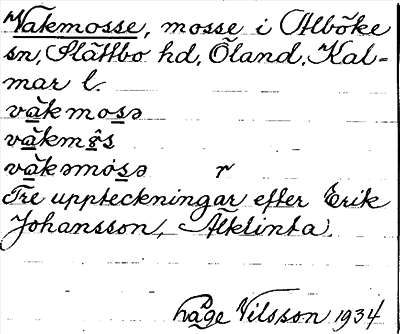 Vakmosse, mosse i Alböke
sn, Slättbo hd, Öland, Kal=
mar l.
våkmosə
våkm s
våkəmòsə r
Tre uppteckningar efter Erik
Johansson, Älklinta.
Åge Nilsson 1934